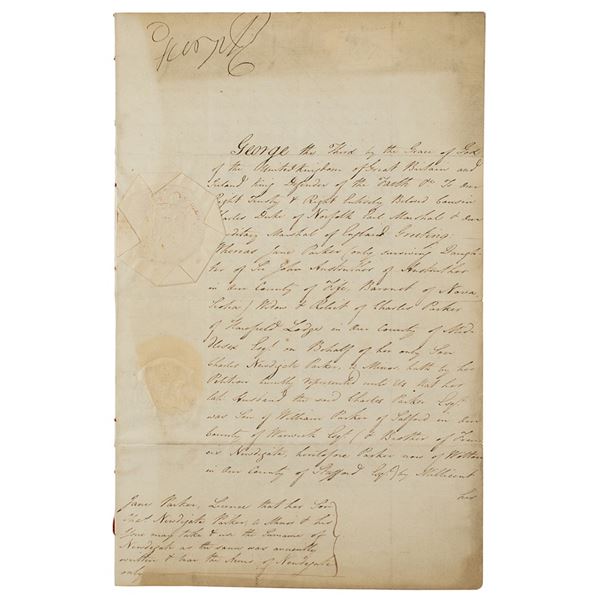 George R
George the Third by the Grace of God
of the United Kingdom of Great Britain and
Ireland King Defender of the Faith &c To Our
Right Trusty & Right Entirely Beloved Cousin
Charles Duke of Norfolk Earl Marshal & Our
Hereditary Marshal of England Greeting:
Whereas Jane Parker (only surviving Daugh-
ter of Sir John Anstruther of Anstruther
in Our County of Fife, Baronet of Nova
Scotia) Widow & Relict of Charles Parker
of Harefield Lodge in Our County of Mid-
dlesex Esqr. in Behalf of her only Son
Charles Newdigate Parker, a Minor, hath by her
Petition humbly represented unto Us that her
late Husband the said Charles Parker Esqr.
was Son of William Parker of Salford in Our
County of Warwick Esqr. (& Brother of Fran-
cis Newdigate, heretofore Parker now of
in Our County of Stafford Esqr.) by Millicent
her
Jane Parker, Licence that her Son
Chas. Newdigate Parker, a Minor & his
Issue may take & use the Surname of
Newdegate as the same was anciently
written & bear the Arms of Newdegate
only